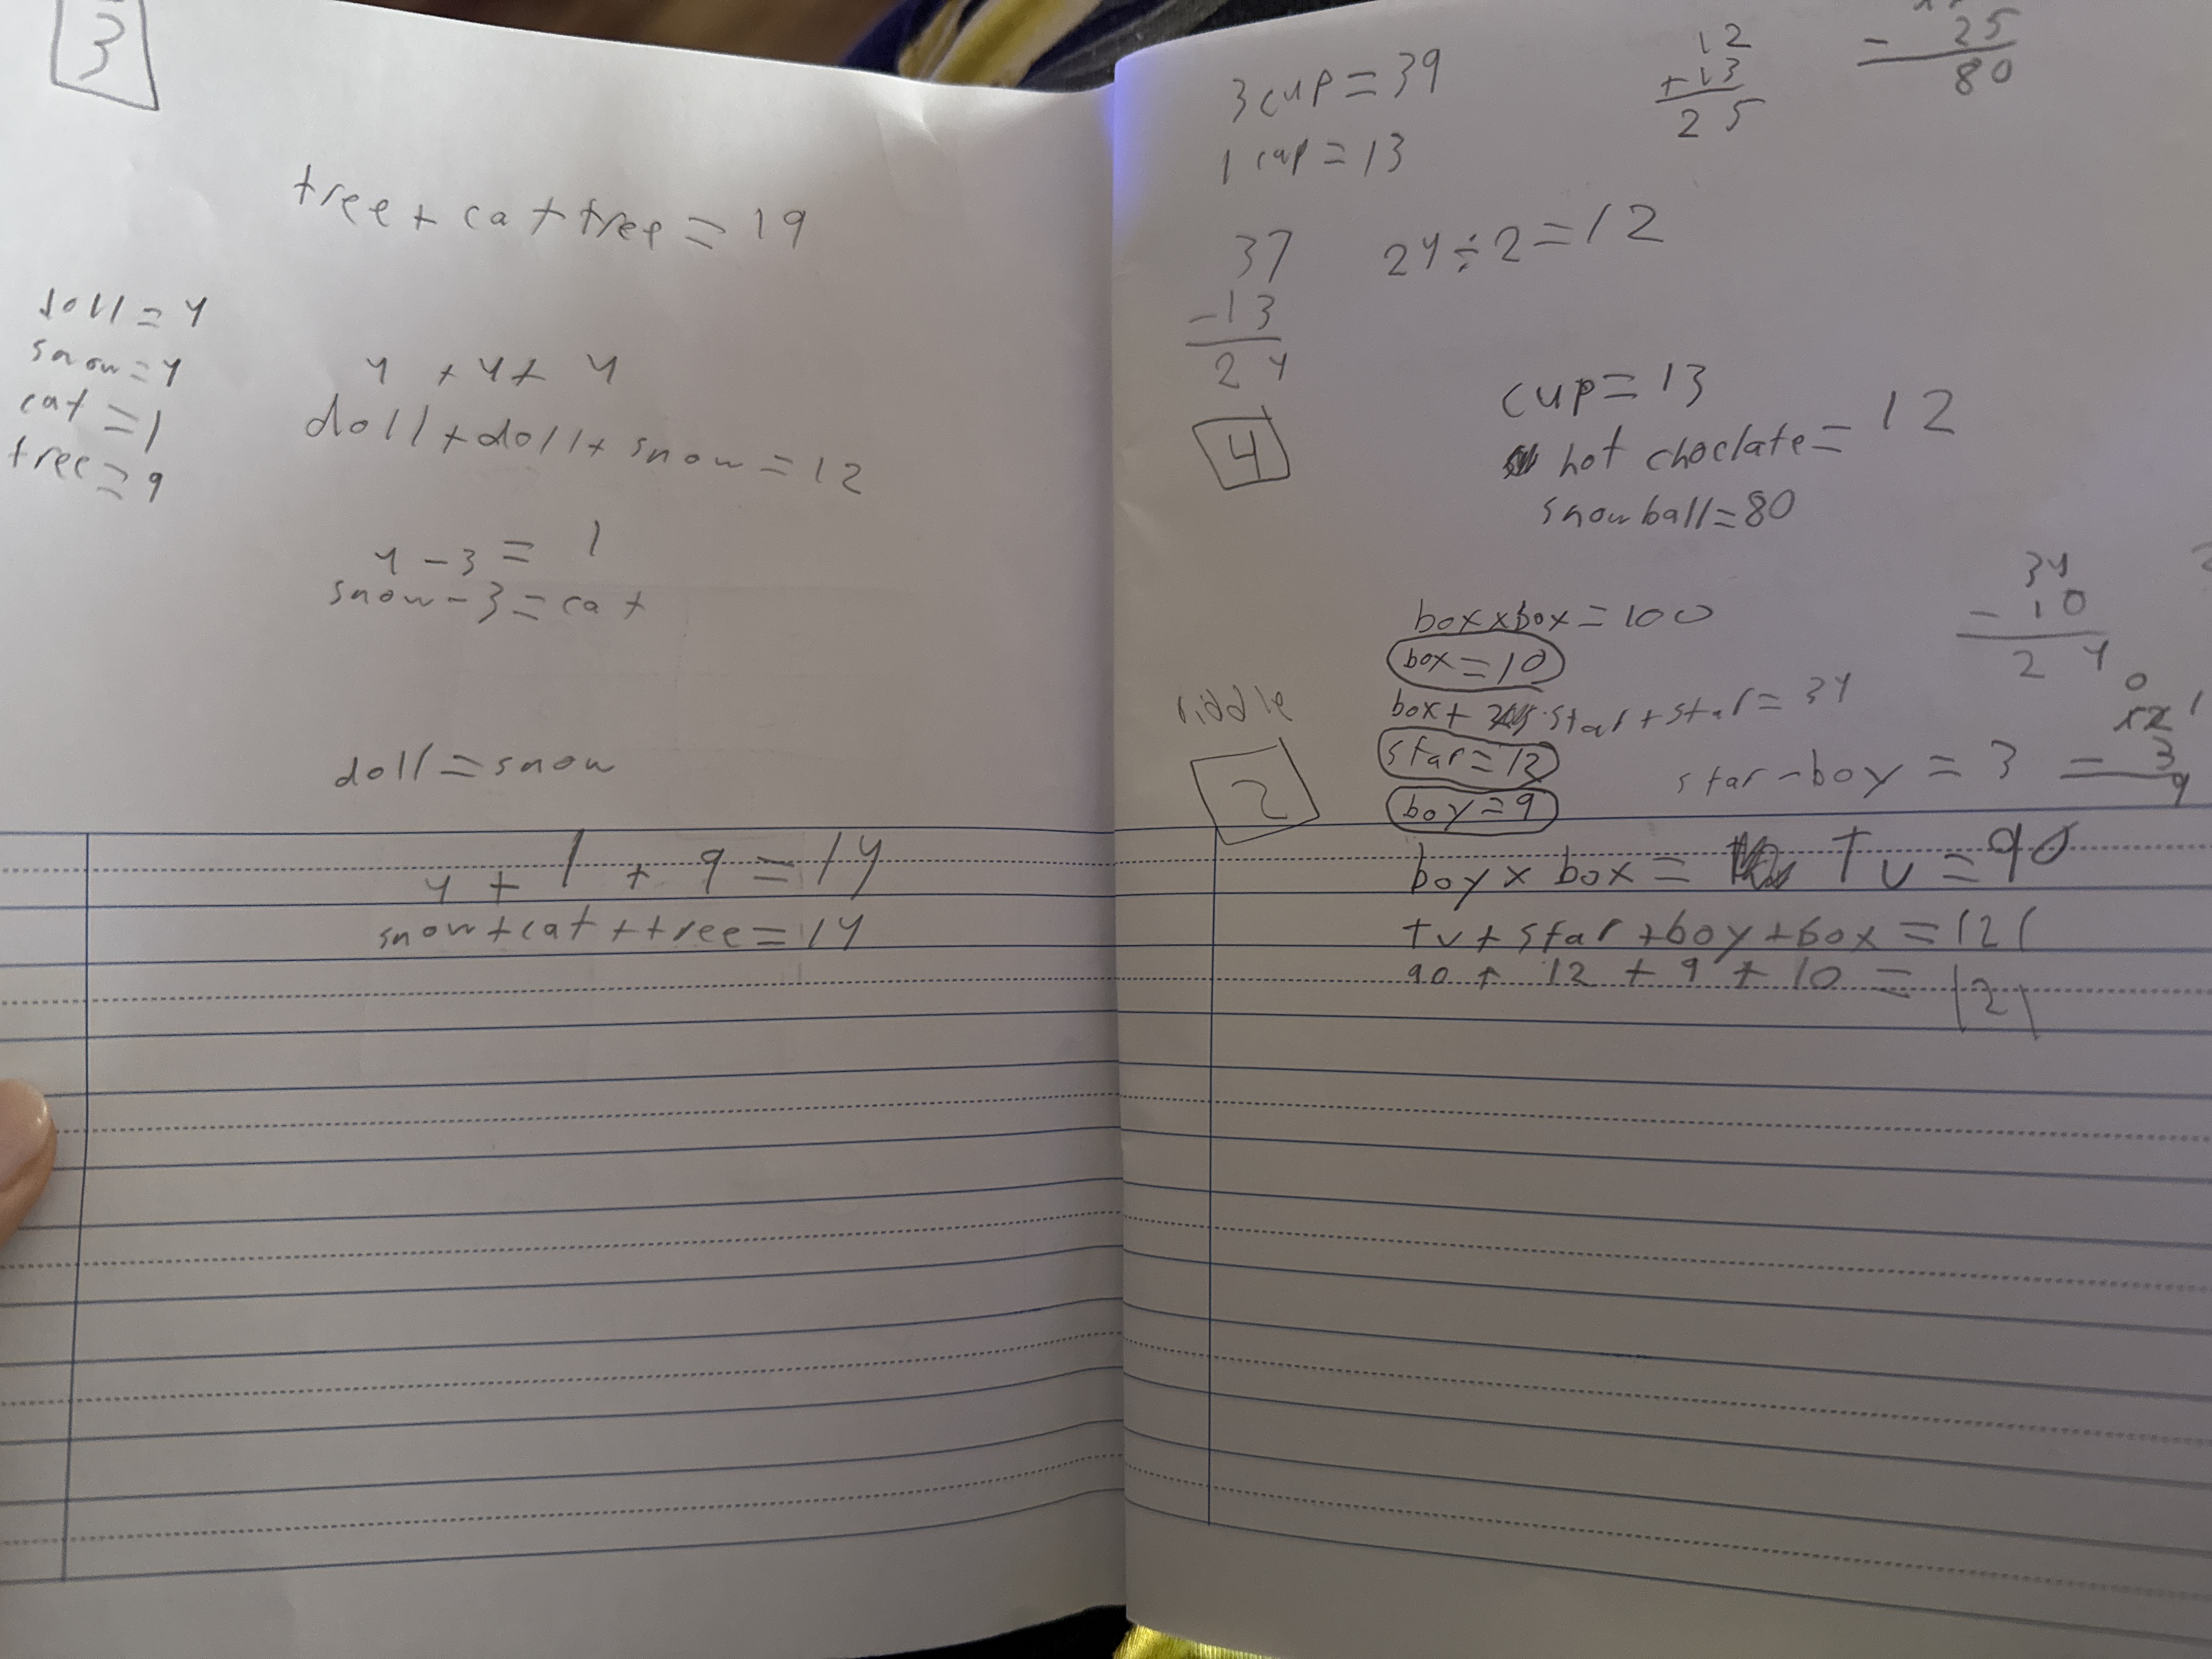 3
tree + cat + tree = 19
doll = 4
snow = 4
cat = 1
tree = 9
4 + 4 + 4
doll + doll + snow = 12
4 - 3 = 1
snow - 3 = cat
doll = snow
4 + 1 + 9 = 14
snow + cat + tree = 14
3 cup = 39
1 cup = 13
12
+ 13
25
- 25
80
37
- 13
24
24 ÷ 2 = 12
4
cup = 13
hot choclate = 12
snowball = 80
box x box = 100
box = 10
34
- 10
24
riddle
2
box + star + star = 34
star = 12
star - boy = 3
boy = 9
- 3
9
boy x box = Tv = 90
tv + star + boy + box = 121
90 + 12 + 9 + 10 = 121